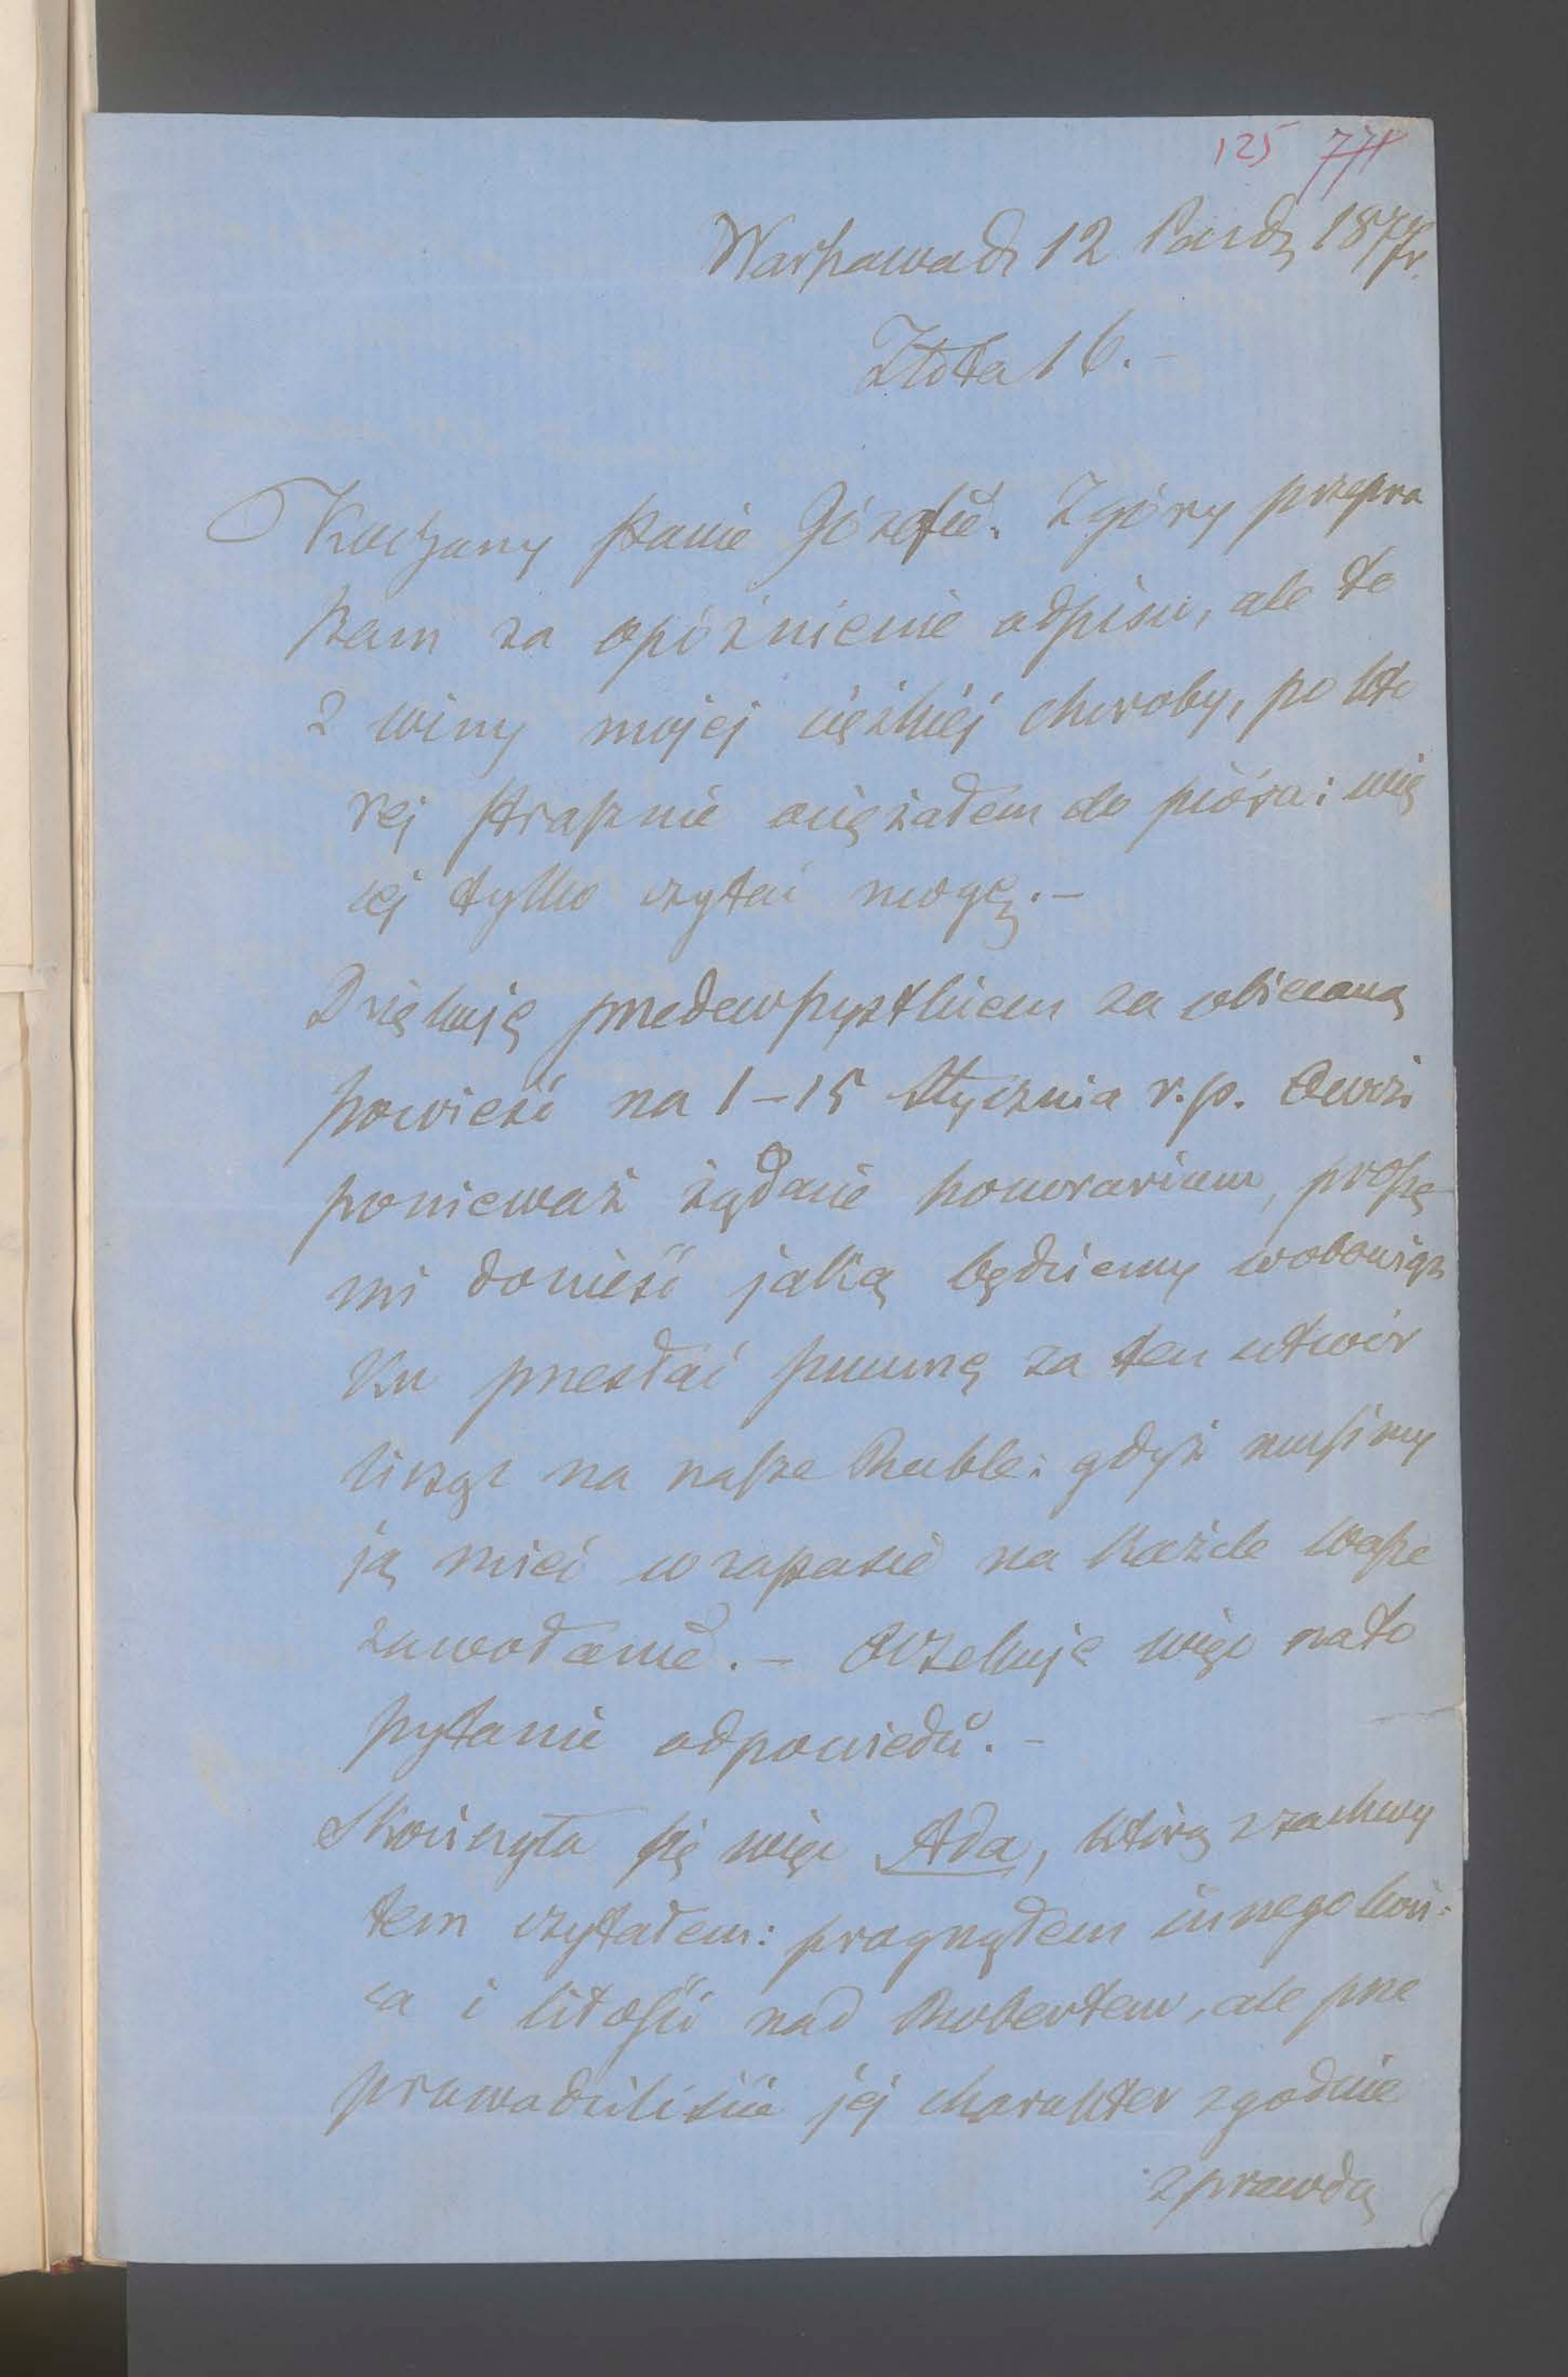 125 771
Warszawa d. 12 Paźdz 1877 r.
Złota 16. –
Kochany Panie Józefie. Z góry przepra
szam za opóźnienie odpisu, ale to
z winy mojej ciężkiéj choroby, po któ
rej strasznie ociężałem do pióra: wię
cej tylko czytać mogę. –
Dziękuję przedewszystkiem za obiecaną
powieść na 1–15 Stycznia r. p.
ponieważ żądanie honorarium, proszę
mi donieść jaką będziemy w obowiąz
ku przesłać summę za ten utwór
licząc na nasze Ruble: gdyż musimy
ją mieć w zapasie na każde wasze
zawołanie. – Oczekuję więc na to
pytanie odpowiedzi. –
Skończyła się więc Ada, którą z zachwy
tem czytałem: pragnąłem innego koń-
ca i litości nad Robertem, ale prze
prowadziliście jej charakter zgodnie
z prawdą